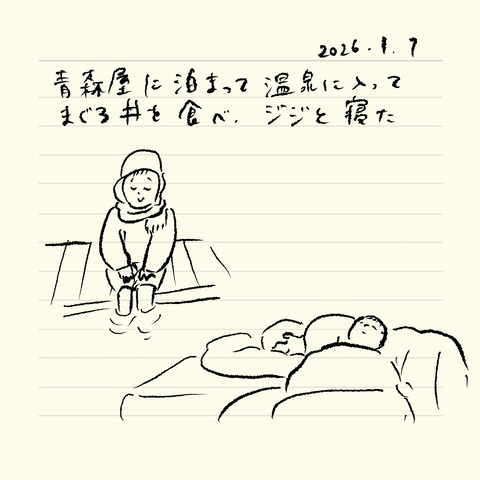 2026.1.7
青森屋に泊まって温泉に入って
まぐろ丼を食べ、ジジと寝た